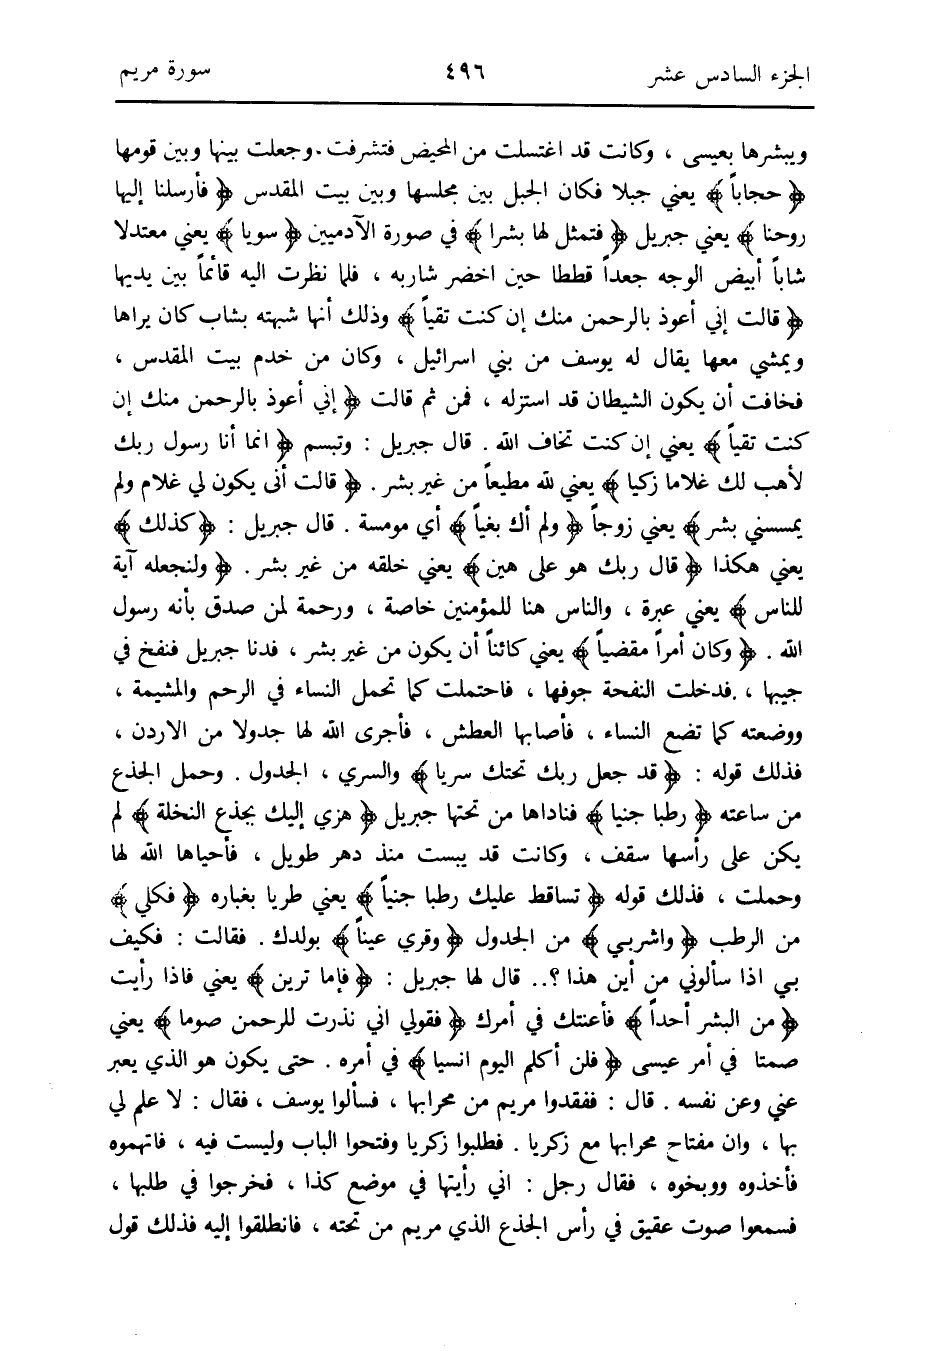 الجزء السادس عشر ٤٩٦ سورة مريم
ويبشرها بعيسى ، وكانت قد اغتسلت من المحيض فتشرفت . وجعلت بينها وبين قومها
﴿ حجاباً ﴾ يعني جبلا فكان الجبل بين مجلسها وبين بيت المقدس ﴿ فأرسلنا إليها
روحنا ﴾ يعني جبريل ﴿ فتمثل لها بشرا ﴾ في صورة الآدميين ﴿ سويا ﴾ يعني معتدلا
شاباً أبيض الوجه جعداً قططا حين اخضر شاربه ، فلما نظرت اليه قائماً بين يديها
﴿ قالت إني أعوذ بالرحمن منك إن كنت تقياً ﴾ وذلك أنها شبهته بشاب كان يراها
ويمشي معها يقال له يوسف من بني اسرائيل ، وكان من خدم بيت المقدس ،
فخافت أن يكون الشيطان قد استزله ، فمن ثم قالت ﴿ إني أعوذ بالرحمن منك إن
كنت تقياً ﴾ يعني إن كنت تخاف الله . قال جبريل : وتبسم ﴿ انما أنا رسول ربك
لأهب لك غلاما زكيا ﴾ يعني لله مطيعاً من غير بشر . ﴿ قالت أنى يكون لي غلام ولم
يمسسني بشر ﴾ يعني زوجاً ﴿ ولم أك بغياً ﴾ أي مومسة . قال جبريل : ﴿ كذلك ﴾
يعني هكذا ﴿ قال ربك هو على هين ﴾ يعني خلقه من غير بشر . ﴿ ولنجعله آية
للناس ﴾ يعني عبرة ، والناس هنا للمؤمنين خاصة ، ورحمة لمن صدق بأنه رسول
الله . ﴿ وكان أمراً مقضياً ﴾ يعني كائناً أن يكون من غير بشر ، فدنا جبريل فنفخ في
جيبها ، فدخلت النفحة جوفها ، فاحتملت كما تحمل النساء في الرحم والمشيمة ،
ووضعته كما تضع النساء ، فأصابها العطش ، فأجرى الله لها جدولا من الاردن ،
فذلك قوله : ﴿ قد جعل ربك تحتك سريا ﴾ والسري ، الجدول . وحمل الجذع
من ساعته ﴿ رطبا جنيا ﴾ فناداها من تحتها جبريل ﴿ هزي إليك بجذع النخلة ﴾ لم
يكن على رأسها سقف ، وكانت قد يبست منذ دهر طويل ، فأحياها الله لها
وحملت ، فذلك قوله ﴿ تساقط عليك رطبا جنياً ﴾ يعني طريا بغباره ﴿ فكلي ﴾
من الرطب ﴿ واشربي ﴾ من الجدول ﴿ وقري عيناً ﴾ بولدك . فقالت : فكيف
بي اذا سألوني من أين هذا ؟.. قال لها جبريل : ﴿ فإما ترين ﴾ يعني فاذا رأيت
﴿ من البشر أحداً ﴾ فأعنتك في أمرك ﴿ فقولي اني نذرت للرحمن صوما ﴾ يعني
صمتا في أمر عيسى ﴿ فلن أكلم اليوم انسيا ﴾ في أمره . حتى يكون هو الذي يعبر
عني وعن نفسه . قال : ففقدوا مريم من محرابها ، فسألوا يوسف ، فقال : لا علم لي
بها ، وان مفتاح محرابها مع زكريا . فطلبوا زكريا وفتحوا الباب وليست فيه ، فاتهموه
فأخذوه ووبخوه ، فقال رجل : اني رأيتها في موضع كذا ، فخرجوا في طلبها ،
فسمعوا صوت عقيق في رأس الجذع الذي مريم من تحته ، فانطلقوا إليه فذلك قول